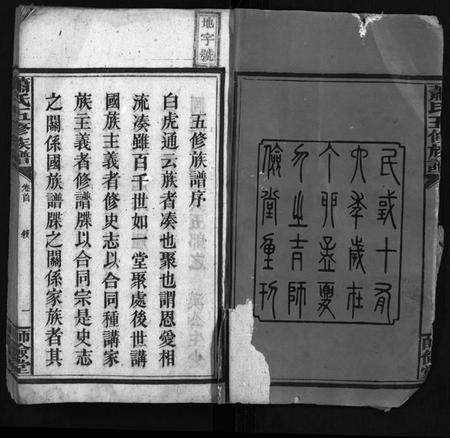 蕭氏五修族譜
師儉堂
民國十有
六年歲在
丁卯孟夏
月之吉師
儉堂重刊
地字號
五修族譜序
白虎通云族者凑也聚也謂恩愛相
流凑雖百千世如一堂聚處後世講
國族主義者修史志以合同種講家
族主義者修譜牒以合同宗是史志
之關係國族譜牒之關係家族者其
蕭氏五修族譜
卷首
一
師儉堂